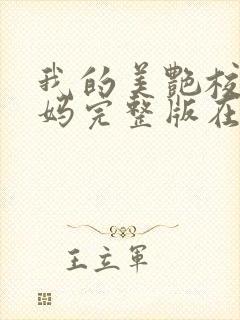 我的美艷校
妈完整版在
王立軍